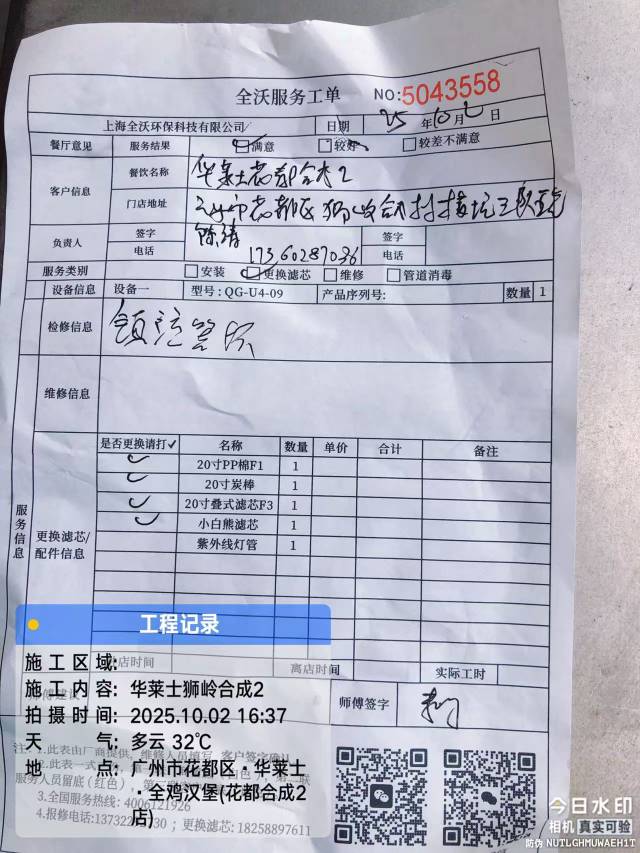 全沃服务工单 NO:5043558
上海全沃环保科技有限公司 日期 25年10月2日
餐厅意见 服务结果 满意 较好 较差不满意
客户信息 餐饮名称 华莱士花都合成2
门店地址 广州市花都区狮岭合成村
负责人 签字 陈清 签字
电话 17360287036 电话
服务类别 安装 更换滤芯 维修 管道消毒
设备信息 设备一 型号:QG-U4-09 产品序列号: 数量 1
检修信息
维修信息
服务信息
更换滤芯/配件信息
是否更换请打✓ 名称 数量 单价 合计 备注
✓ 20寸PP棉F1 1
✓ 20寸炭棒 1
✓ 20寸叠式滤芯F3 1
✓ 小白熊滤芯 1
紫外线灯管 1
店时间 离店时间 实际工时
师傅签字
工程记录
施工区域:
施工内容: 华莱士狮岭合成2
拍摄时间: 2025.10.02 16:37
天气: 多云 32℃
地点: 广州市花都区·华莱士·全鸡汉堡(花都合成2店)
注: 1.此表由厂商提供,维修人员填写,客户签字确认
服务人员留底(红色)
3.全国服务热线: 4006121926
4.报修电话:13732 30 ; 更换滤芯: 18258897611
今日水印
相机 真实可验
防伪 NUTLGHMUWAEH1T